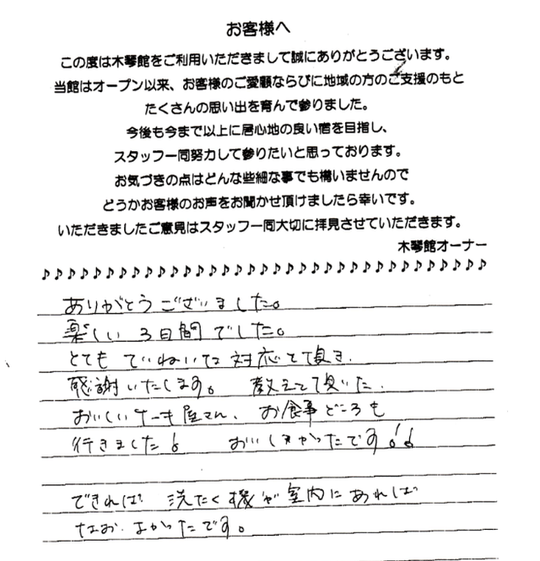 お客様へ
この度は木琴館をご利用いただきまして誠にありがとうございます。
当館はオープン以来、お客様のご愛顧ならびに地域の方のご支援のもと
たくさんの思い出を育んで参りました。
今後も今まで以上に居心地の良い宿を目指し、
スタッフ一同努力して参りたいと思っております。
お気づきの点はどんな些細な事でも構いませんので
どうかお客様のお声をお聞かせ頂けましたら幸いです。
いただきましたご意見はスタッフ一同大切に拝見させていただきます。
木琴館オーナー
♪♪♪♪♪♪♪♪♪♪♪♪♪♪♪♪♪♪♪♪♪♪♪♪♪♪♪♪♪♪♪♪♪♪♪
ありがとうございました。
楽しい3日間でした。
とても ていねいな 対応して頂き、
感謝いたします。 教えて頂いた、
おいしいケーキ屋さん、お食事どころも
行きました! おいしかったです!!
できれば 洗たく機が室内にあれば
なお よかったです。